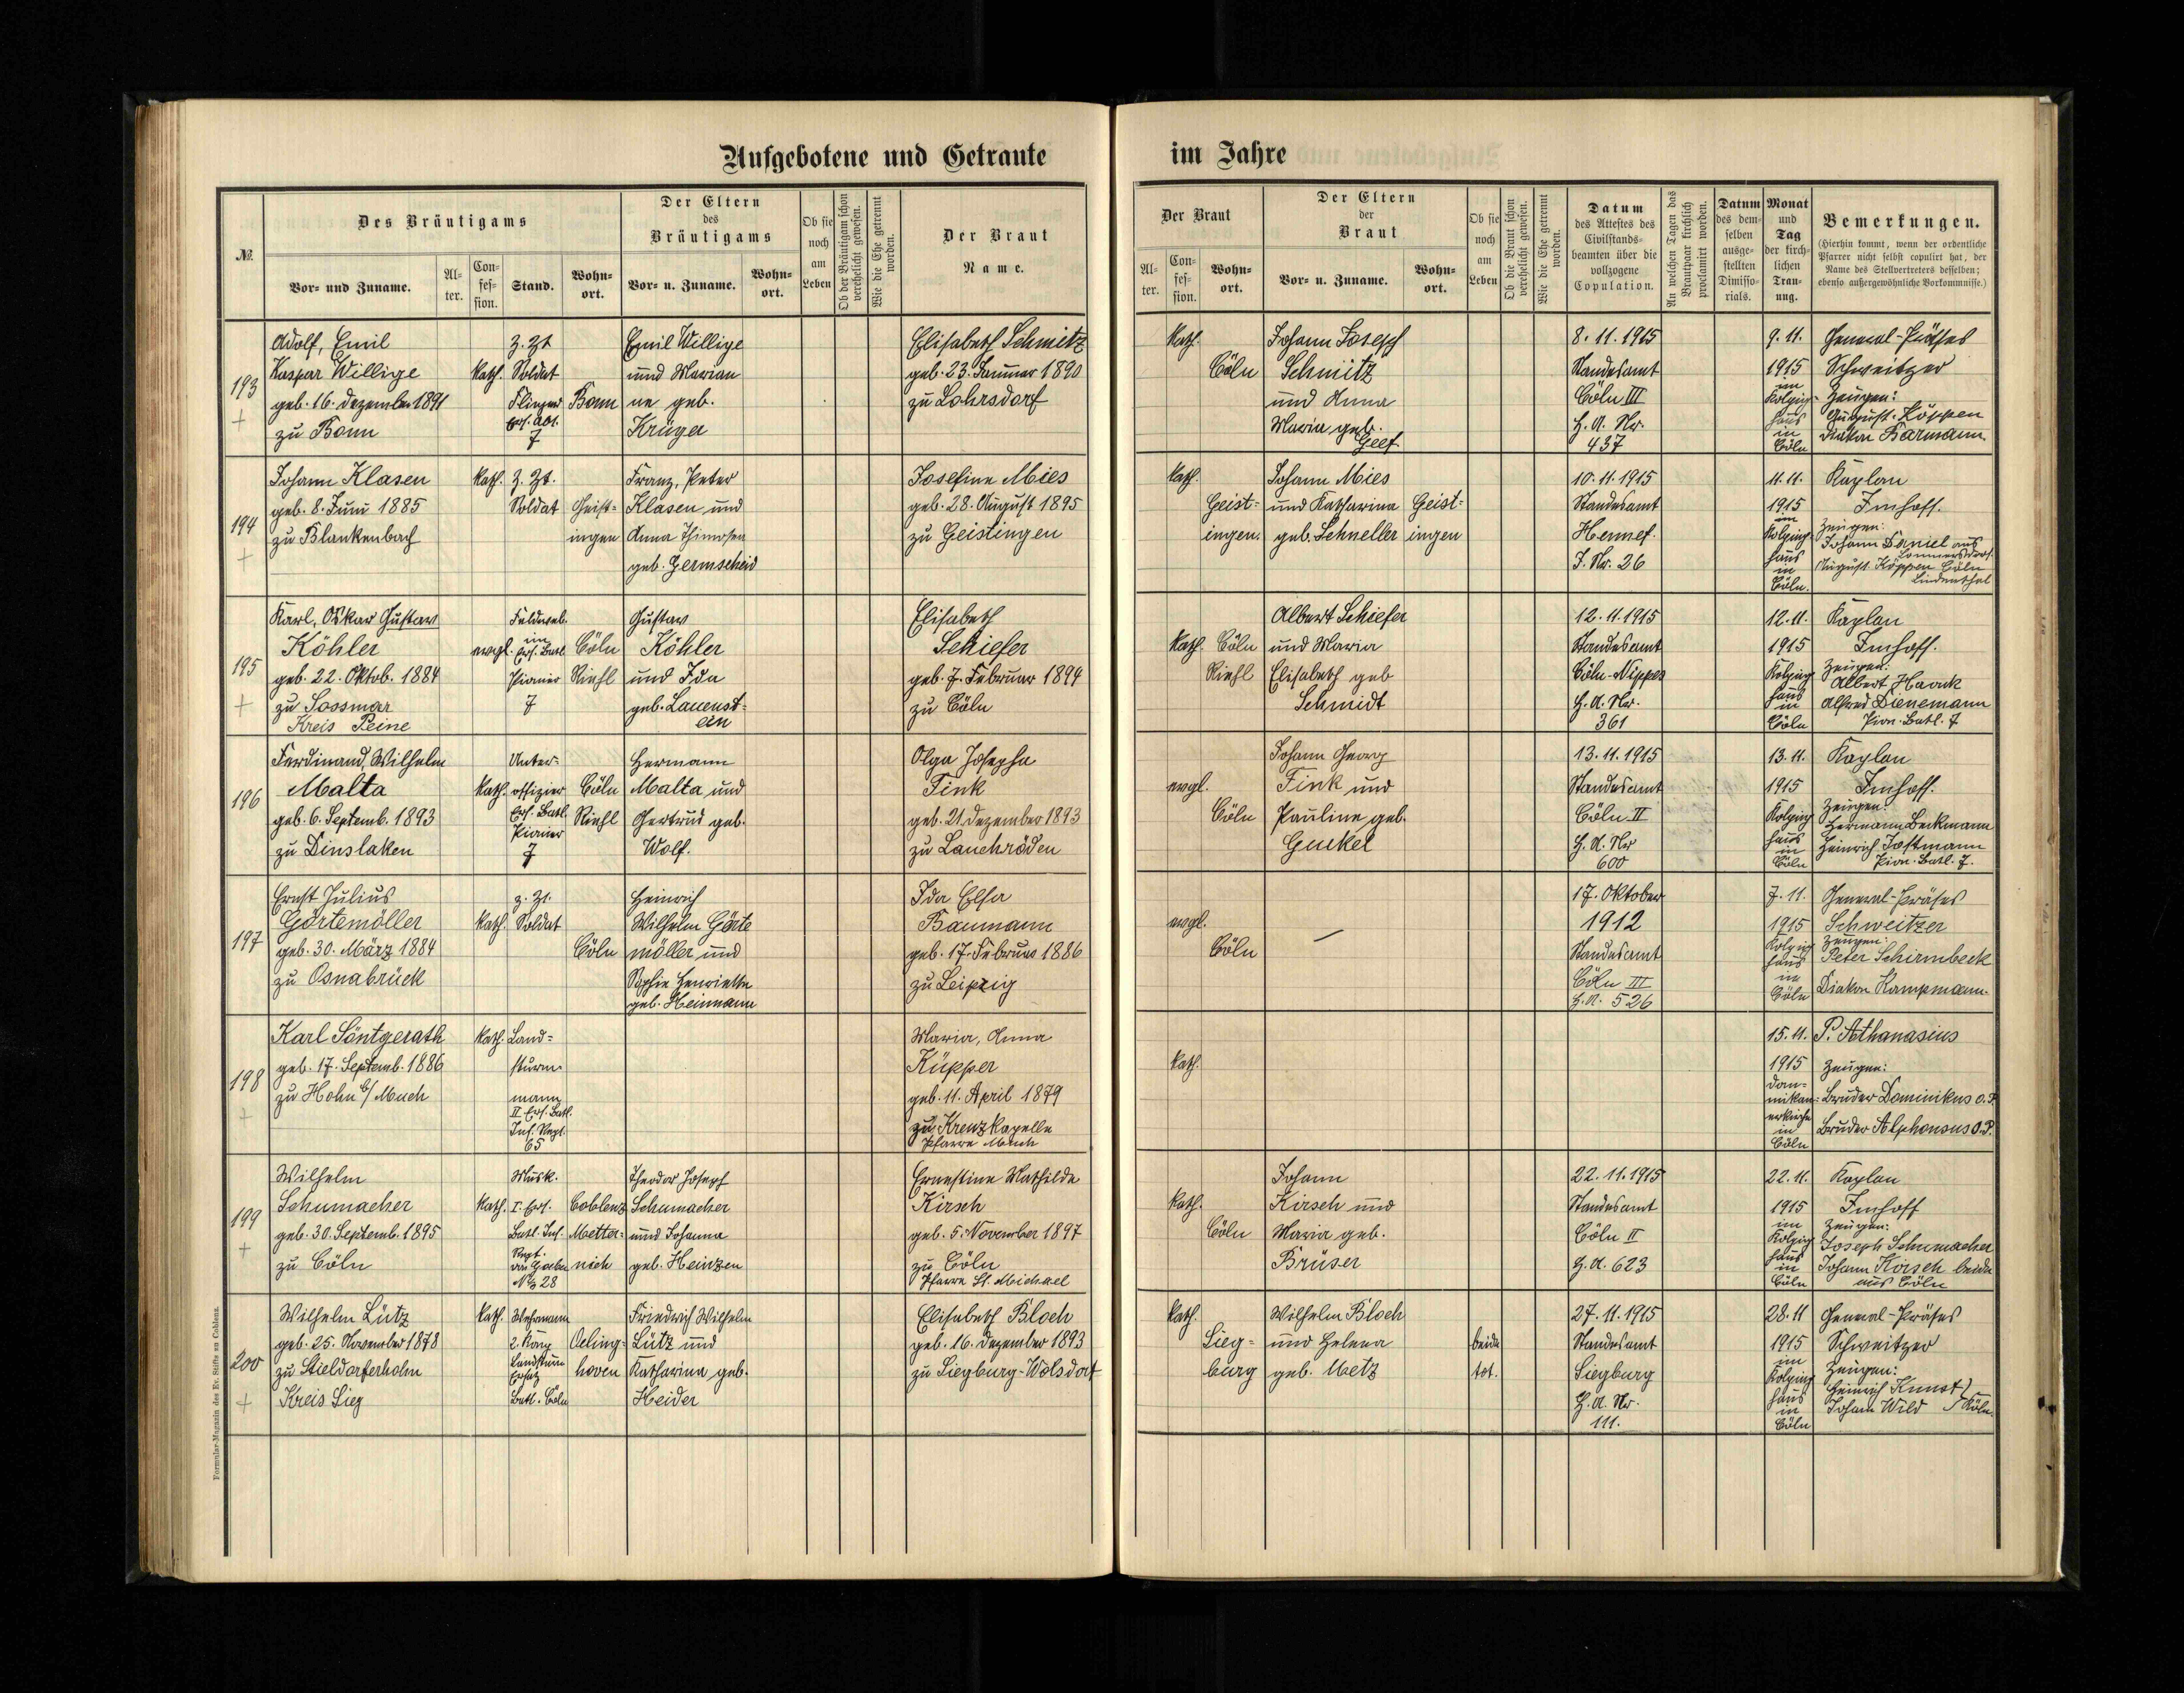 Aufgebotene und Getraute
im Jahre
№.
Des Bräutigams
Vor- und Zuname.
Al-
ter.
Con-
fes-
sion.
Stand.
Wohn-
ort.
Der Eltern
des
Bräutigams
Vor- u. Zuname.
Wohn-
ort.
Ob sie
noch
am
Leben
Ob der Bräutigam schon
verehelicht gewesen.
Wie die Ehe getrennt
worden.
Der Braut
Name.
Der Braut
Al-
ter.
Con-
fes-
sion.
Wohn-
ort.
Der Eltern
der
Braut
Vor- u. Zuname.
Wohn-
ort.
Ob sie
noch
am
Leben
Ob die Braut schon
verehelicht gewesen.
Wie die Ehe getrennt
worden.
Datum
des Attestes des
Civilstands-
beamten über die
vollzogene
Copulation.
An welchen Tagen das
Brautpaar kirchlich
proclamirt worden.
Datum
des dem-
selben
ausge-
stellten
Dimisso-
rials.
Monat
und
Tag
der kirch-
lichen
Trau-
ung.
Bemerkungen.
(Hierhin kommt, wenn der ordentliche
Pfarrer nicht selbst copulirt hat, der
Name des Stellvertreters desselben;
ebenso außergewöhnliche Vorkommnisse.)
193
+
Adolf, Emil
Kaspar Willige
geb. 16. Dezember 1891
zu Bonn
kath.
z. Zt
Soldat
Flieger
Ers. Abt.
7
Bonn
Emil Willige
und Marian
ne geb.
Krüger
Elisabeth Schmitz
geb. 23. Januar 1890
zu Lohrsdorf
kath.
Cöln
Johann Joseph
Schmitz
und Anna
Maria, geb.
Geef
8. 11. 1915
Standesamt
Cöln III
H. A. Nr.
437
9. 11.
1915
im
Kolping-
haus
in
Cöln
General-Präses
Schweitzer
Zeugen:
August Köppen
Diakon Barmann
194
+
Johann Klasen
geb. 8. Juni 1885
zu Blankenbach
kath.
z. Zt.
Soldat
Geist-
ingen
Franz, Peter
Klasen und
Anna
geb. Germscheid
Josefine Mies
geb. 28. August 1895
zu Geistingen
kath.
Geist-
ingen.
Johann Mies
und Katharina
geb. Schneller
Geist-
ingen
10. 11. 1915
Standesamt
Hennef.
J. Nr. 26
11. 11.
1915
im
Kolping
haus
in
Cöln.
Kaplan
Imhoff.
Zeugen:
Johann Daniel aus
Lommersdorf.
August Köppen Cöln
Lindenthal
195
+
Karl, Oskar Gustav
Köhler
geb. 22. Oktob. 1884
zu Sossmar
Kreis Peine
evgl.
Feldweb.
im
Ers. Batl
Pionier
7
Cöln
Riehl
Gustav
Köhler
und Ida
geb. Lauenst-
ein
Elisabeth
Schiefer
geb. 7. Februar 1894
zu Cöln
kath.
Cöln
Riehl
Albert Schiefer
und Maria
Elisabeth geb
Schmidt
12. 11. 1915
Standesamt
Cöln-Nippes
H. A. Nr.
361
12. 11.
1915
Kolping
haus
in
Cöln
Kaplan
Imhoff.
Zeugen:
Albert Haack
Alfred Dienemann
Pion. Batl. 7
196
Ferdinand, Wilhelm
Malta
geb. 6. Septemb. 1893
zu Dinslaken
kath.
Unter-
offizier
Ers. Batl.
Pionier
7
Cöln
Riehl
Hermann
Malta und
Gertrud geb.
Wolf.
Olga Josepha
Fink
geb. 21. Dezember 1893
zu Lauchröden
evgl.
Cöln
Johann Georg
Fink und
Pauline geb.
Guckel
13. 11. 1915
Standesamt
Cöln II
H. A. Nr
600
13. 11.
1915
Kolping
haus
in
Cöln
Kaplan
Imhoff.
Zeugen:
Hermann Beckmann
Heinrich Jostmann
Pion. Batl. 7.
197
Ernst Julius
Görtemöller
geb. 30. März 1884
zu Osnabrück
kath.
z. Zt.
Soldat
Cöln
Heinrich
Wilhelm Görte
möller und
Sophie Henriette
geb. Heimann
Ida Elsa
Baumann
geb. 17. Februar 1886
zu Leipzig
evgl.
Cöln
—
17. Oktober
1912
Standesamt
Cöln III
H. A. 526
7. 11.
1915
Kolping
haus
in
Cöln
General-Präses
Schweitzer
Zeugen:
Peter Schirmbeck
Diakon Kampmann.
198
+
Karl Söntgerath
geb. 17. Septemb. 1886
zu Hohn b/ Much
kath.
Land-
sturm-
mann
II Ers. Batl.
Inf. Regt.
65
Maria, Anna
Küpper
geb. 11. April 1879
zu Kreuzkapelle
Pfarre Much
kath.
15. 11.
1915
Dom-
inikan-
erkirche
in
Cöln
P. Athanasius
Zeugen:
Bruder Dominikus O. P.
Bruder Alphonsus O. P.
199
+
Wilhelm
Schumacher
geb. 30. Septemb. 1895
zu Cöln
kath.
Musk.
I. Ers.
Batl. Inf.
Regt.
von Goeben
No 28
Coblenz
Metter-
nich
Theodor Joseph
Schumacher
und Johanna
geb. Heinzen
Ernestine Mathilde
Kirsch
geb. 5. November 1897
zu Cöln
Pfarre St. Michael
kath.
Cöln
Johann
Kirsch und
Maria geb.
Brüser
22. 11. 1915
Standesamt
Cöln II
H. A. 623
22. 11.
1915
im
Kolping
haus
in
Cöln
Kaplan
Imhoff
Zeugen:
Joseph Schumacher
Johann Kirsch beide
aus Cöln
200
+
Wilhelm Lütz
geb. 25. November 1878
zu Stieldorferhohn
Kreis Sieg
kath.
Wehrmann
2. Komp
Landsturm
Ersatz
Batl. Cöln
Oeling-
hoven
Friedrich Wilhelm
Lütz und
Katharina geb.
Heider
Elisabeth Bloch
geb. 16. Dezember 1893
zu Siegburg-Wolsdorf
kath.
Sieg-
burg
Wilhelm Bloch
und Helena
geb. Metz
beide
tot.
27. 11. 1915
Standesamt
Siegburg
H. A. Nr.
111.
28. 11
1915
im
Kolping
haus
in
Cöln
General-Präses
Schweitzer
Zeugen:
Heinrich Kunst
Johann Wild } Köln.
Formular-Magazin des Ev. Stifts zu Coblenz.